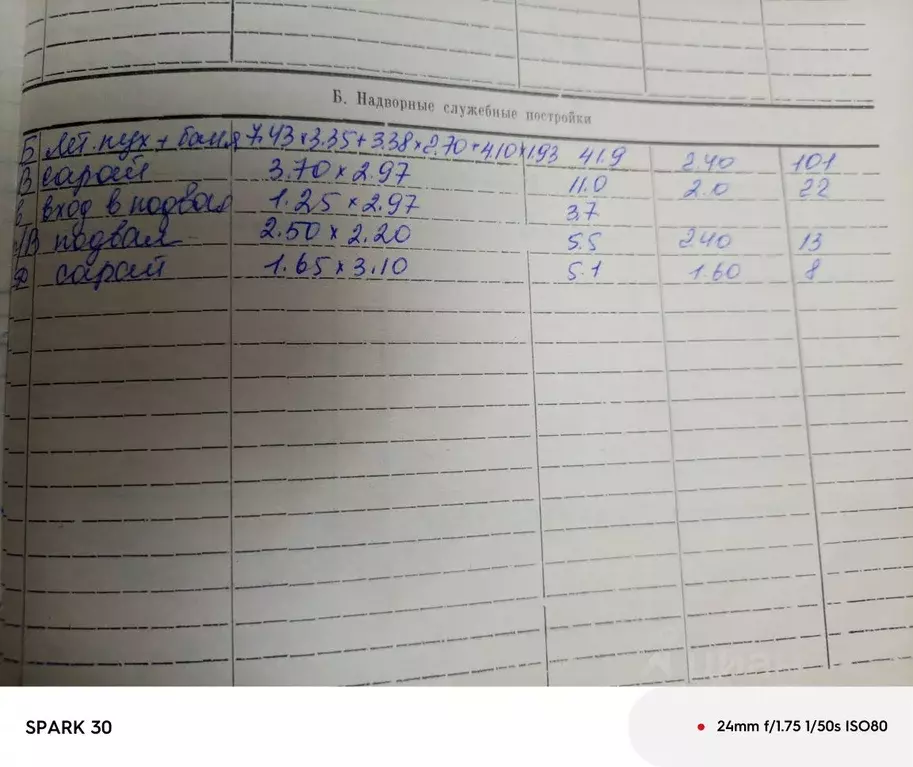 Б. Надворные служебные постройки
Б лет. кух + баня 7.43×3.35+3.38×2.70+4.10×1.93 41.9 2.40 101
В сарай 3.70×2.97 11.0 2.0 22
вход в подвал 1.25×2.97 3.7
подвал 2.50×2.20 5.5 2.40 13
сарай 1.65×3.10 5.1 1.60 8
циан
SPARK 30
24mm f/1.75 1/50s ISO80